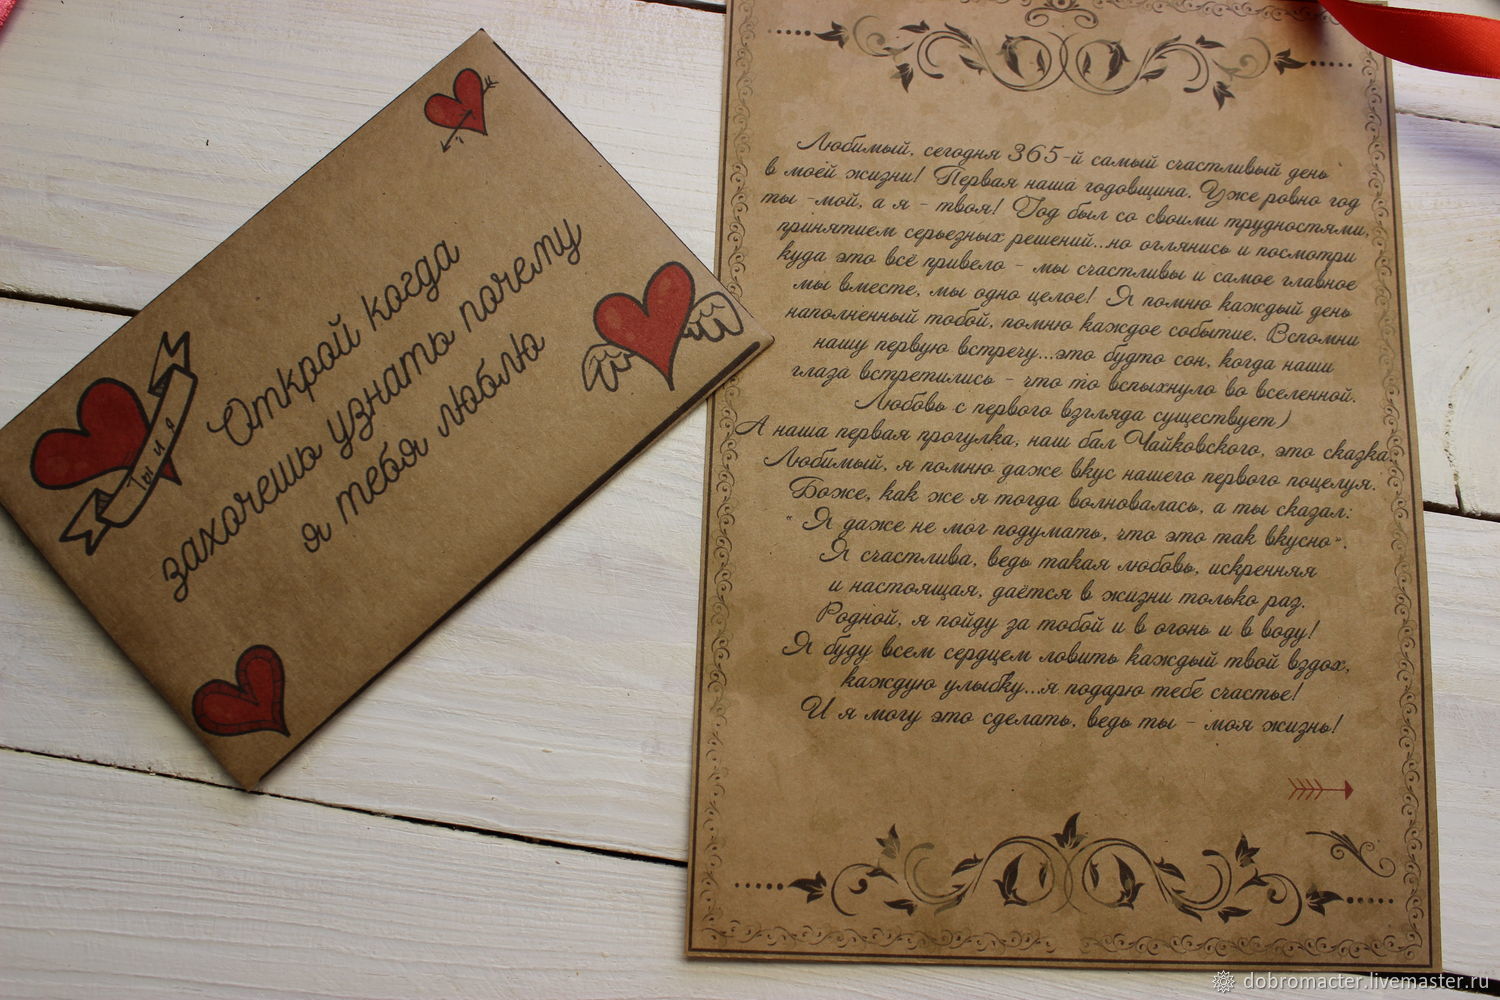 Открой когда
захочешь узнать почему
я тебя люблю
Ты и я
Любимый, сегодня 365-й самый счастливый день
в моей жизни! Первая наша годовщина. Уже ровно год
ты -мой, а я - твоя! Год был со своими трудностями,
принятием серьезных решений...но оглянись и посмотри
куда это всё привело - мы счастливы и самое главное
мы вместе, мы одно целое! Я помню каждый день
наполненный тобой, помню каждое событие. Вспомни
нашу первую встречу...это будто сон, когда наши
глаза встретились - что то вспыхнуло во вселенной.
Любовь с первого взгляда существует)
А наша первая прогулка, наш бал Чайковского, это сказка.
Любимый, я помню даже вкус нашего первого поцелуя.
Боже, как же я тогда волновалась, а ты сказал:
" Я даже не мог подумать, что это так вкусно".
Я счастлива, ведь такая любовь, искренняя
и настоящая, даётся в жизни только раз.
Родной, я пойду за тобой и в огонь и в воду!
Я буду всем сердцем ловить каждый твой вздох,
каждую улыбку...я подарю тебе счастье!
И я могу это сделать, ведь ты - моя жизнь!
dobromacter.livemaster.ru